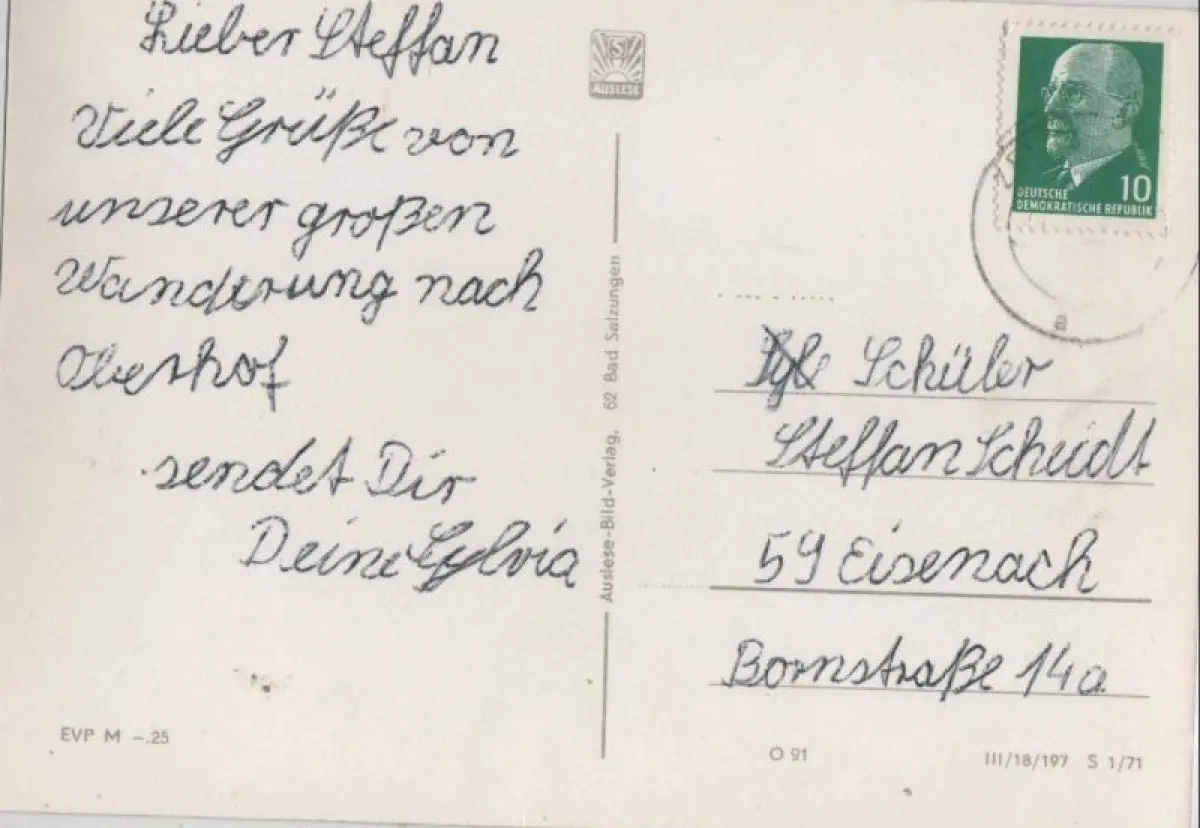 Lieber Steffan
Viele Grüße von
unserer großen
Wanderung nach
Oberhof
sendet Dir
Deine Sylvia
EVP M –.25
AUSLESE
Auslese-Bild-Verlag, 62 Bad Salzungen
10
DEUTSCHE
DEMOKRATISCHE REPUBLIK
Schüler
Steffan Scheidt
59 Eisenach
Bornstraße 14a
O 91
III/18/197 S 1/71